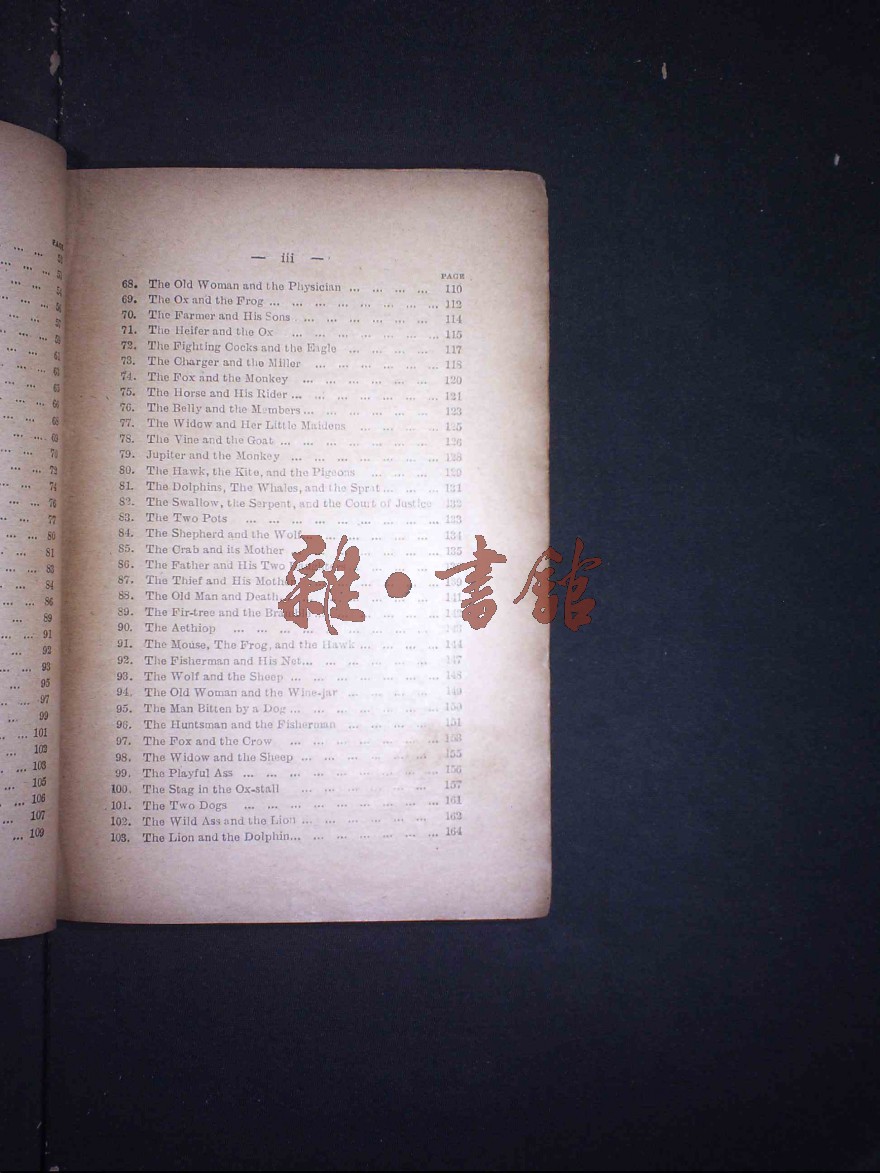 PAGE
77
80
81
83
84
86
89
91
92
93
95
97
99
101
102
103
105
106
107
109
— iii —
PAGE
68. The Old Woman and the Physician ... ... ... ... 110
69. The Ox and the Frog ... ... ... ... ... ... ... ... 112
70. The Farmer and His Sons ... ... ... ... ... ... 114
71. The Heifer and the Ox ... ... ... ... ... ... ... 115
72. The Fighting Cocks and the Eagle ... ... ... ... 117
73. The Charger and the Miller ... ... ... ... ... ... 118
74. The Fox and the Monkey ... ... ... ... ... ... 120
75. The Horse and His Rider ... ... ... ... ... ... ... 121
76. The Belly and the Members ... ... ... ... ... ... 123
77. The Widow and Her Little Maidens ... ... ... ... 125
78. The Vine and the Goat ... ... ... ... ... ... ... 126
79. Jupiter and the Monkey ... ... ... ... ... ... ... 128
80. The Hawk, the Kite, and the Pigeons ... ... ... 129
81. The Dolphins, The Whales, and the Sprat ... ... ... 131
82. The Swallow, the Serpent, and the Court of Justice 132
83. The Two Pots ... ... ... ... ... ... ... ... ... 133
84. The Shepherd and the Wolf ... ... ... ... 134
85. The Crab and its Mother ... ... ... ... 135
86. The Father and His Two
87. The Thief and His Mother
88. The Old Man and Death ... ... ... ... 141
89. The Fir-tree and the
90. The Aethiop ... ... ... ...
91. The Mouse, The Frog, and the Hawk ... ... ... ... 144
92. The Fisherman and His Net ... ... ... ... ... ... 147
93. The Wolf and the Sheep ... ... ... ... ... ... ... 148
94. The Old Woman and the Wine-jar ... ... ... ... 149
95. The Man Bitten by a Dog ... ... ... ... ... ... ... 150
96. The Huntsman and the Fisherman ... ... ... ... 151
97. The Fox and the Crow ... ... ... ... ... ... ... 153
98. The Widow and the Sheep ... ... ... ... ... ... 155
99. The Playful Ass ... ... ... ... ... ... ... ... ... 156
100. The Stag in the Ox-stall ... ... ... ... ... ... 157
101. The Two Dogs ... ... ... ... ... ... ... ... ... 161
102. The Wild Ass and the Lion ... ... ... ... ... ... 162
103. The Lion and the Dolphin ... ... ... ... ... ... ... 164
雜·書館